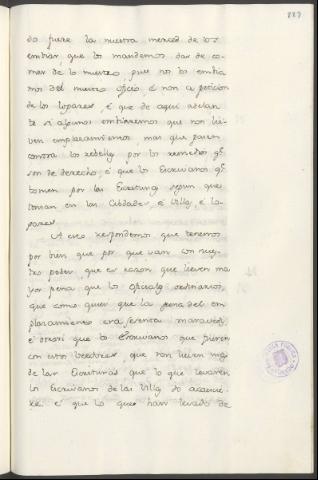 227
do fuere la nuestra merced de los
embiar, que los mandemos dar de co-
mer de lo nuestro, pues nos los embia-
mos del nuestro oficio, é non a peticion
de los logares, é que de aqui adelan-
te si algunos embiaremos que non lie-
ven emplazamientos, mas que pasen
contra los rebelles por los remedios q.e
son de derecho, é que los Escrivanos q.e
tomen por las Escrituras segun que
toman en las Cibdades, é Villas, é Lo-
gares.
A esto respondemos que tenemos
por bien que por que van con nues-
tro poder, que es razon que lieven ma-
yor pena que los oficiales ordinarios,
que como quier que la pena del em-
plazamiento era sesenta maraveds,
é otrosi que los Escrivanos que fueren
con estos Veedores, que non lieven mas
de las Escrituras que lo que levaren
los Escrivanos de las Villas do acaecie-
re: é que lo que han levado de